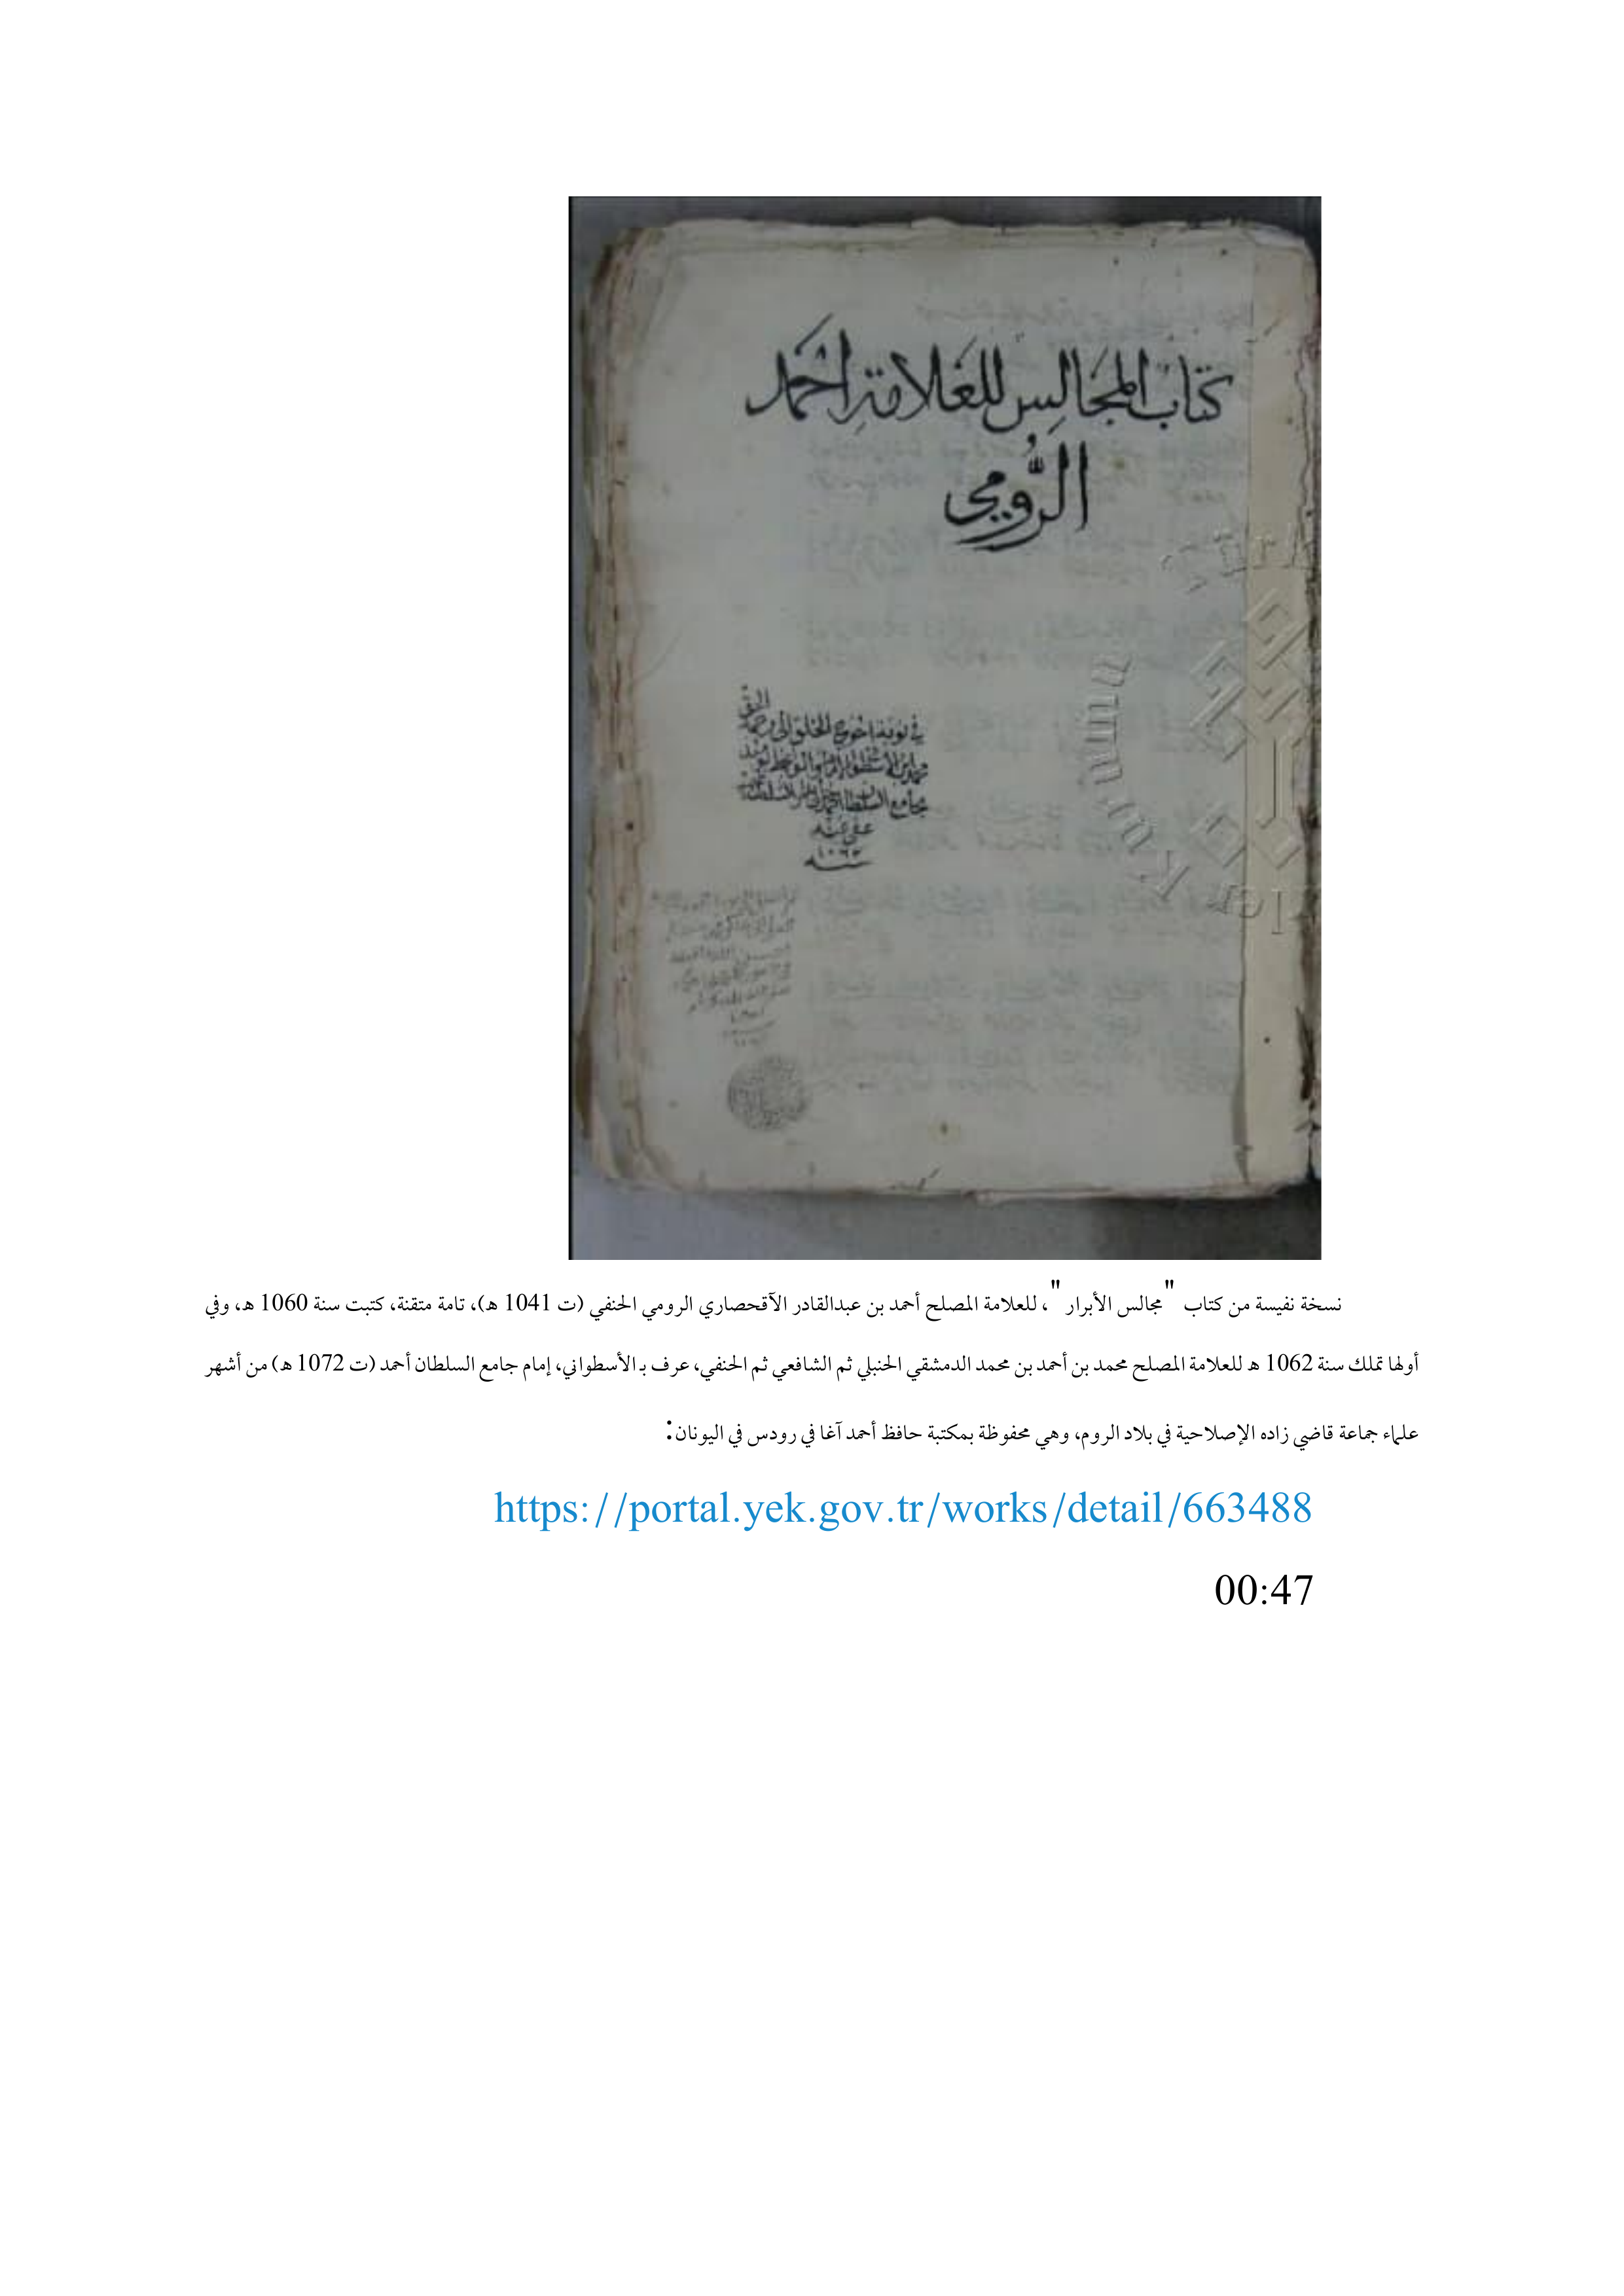 كتاب المجالس للعلامة احمد
الرومي
في نوبة احوج الخلق الى رحمة الحق
محمد ابن الاسطواني الامام والواعظ يومئذ
بجامع السلطان
عفي عنه
سنة ١٠٦٢
نسخة نفيسة من كتاب "مجالس الأبرار"، للعلامة المصلح أحمد بن عبدالقادر الآقحصاري الرومي الحنفي (ت 1041 هـ)، تامة متقنة، كتبت سنة 1060 هـ، وفي
أولها تملك سنة 1062 هـ للعلامة المصلح محمد بن أحمد بن محمد الدمشقي الحنبلي ثم الشافعي ثم الحنفي، عرف بـ الأسطواني، إمام جامع السلطان أحمد (ت 1072 هـ) من أشهر
علماء جماعة قاضي زاده الإصلاحية في بلاد الروم، وهي محفوظة بمكتبة حافظ أحمد آغا في رودس في اليونان:
https://portal.yek.gov.tr/works/detail/663488
00:47